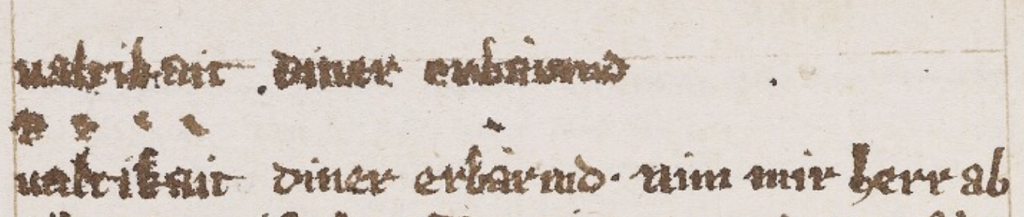 ualtikait diner erbármd
ualtikait diner erbármd · nim mir herr ab